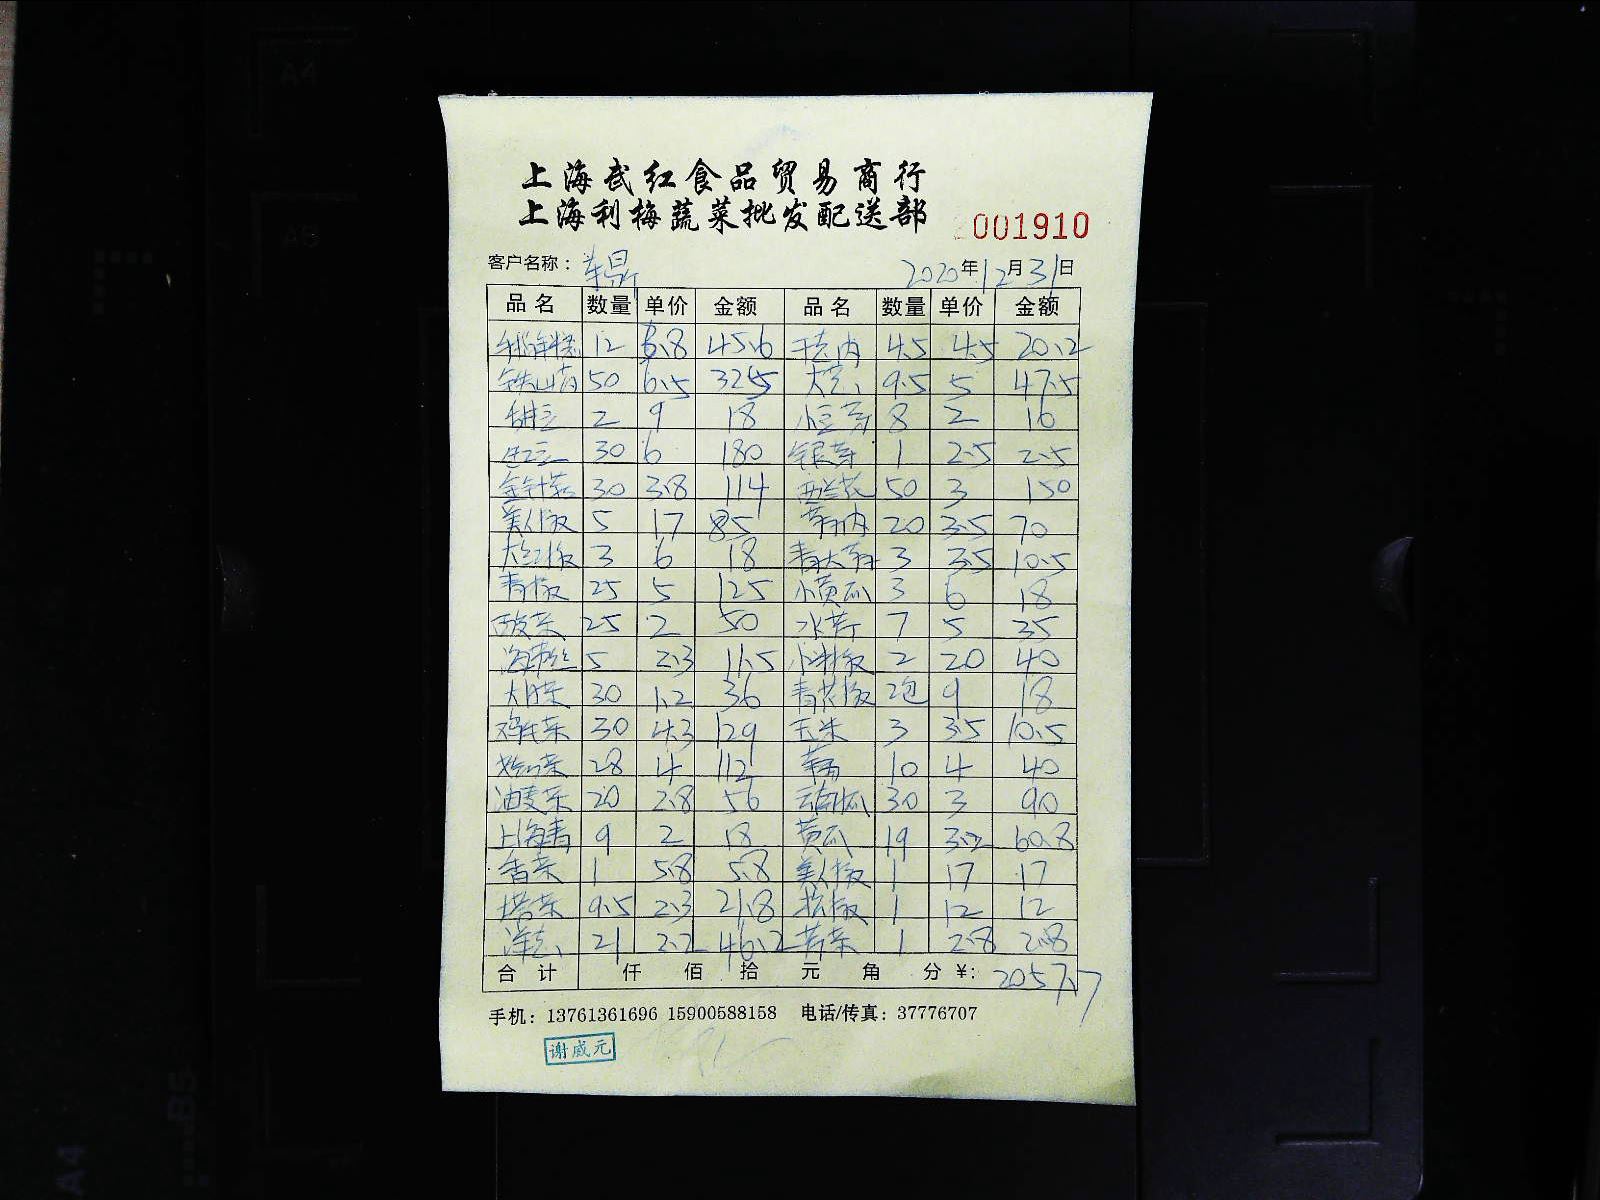 上海武红食品贸易商行
上海利梅蔬菜批发配送部
001910
客户名称： 2020年12月31日
品名 数量 单价 金额 品名 数量 单价 金额
12 3.8 45.6 4.5 4.5 20.2
铁山药 50 6.5 325 大葱 9.5 5 47.5
甜豆 2 9 18 小豆芽 8 2 16
30 6 180 银芽 1 2.5 2.5
金针菇 30 3.8 114 西兰花 50 3 150
美人椒 5 17 85 20 3.5 70
大红椒 3 6 18 3 3.5 10.5
青椒 25 5 125 小黄瓜 3 6 18
酸菜 25 2 50 水芹 7 5 35
海带丝 5 2.3 11.5 小米椒 2 20 40
大白菜 30 1.2 36 青花椒 2包 9 18
鸡毛菜 30 4.3 129 玉米 3 3.5 10.5
28 4 112 10 4 40
油麦菜 20 2.8 56 30 3 90
上海青 9 2 18 黄瓜 19 3.2 60.8
香菜 1 5.8 5.8 美人椒 1 17 17
塔菜 9.5 2.3 21.8 1 12 12
洋葱 21 2.2 46.2 芹菜 1 2.8 2.8
合计 仟 佰 拾 元 角 分 ¥: 2057.7
手机：13761361696 15900588158 电话/传真：37776707
谢威元